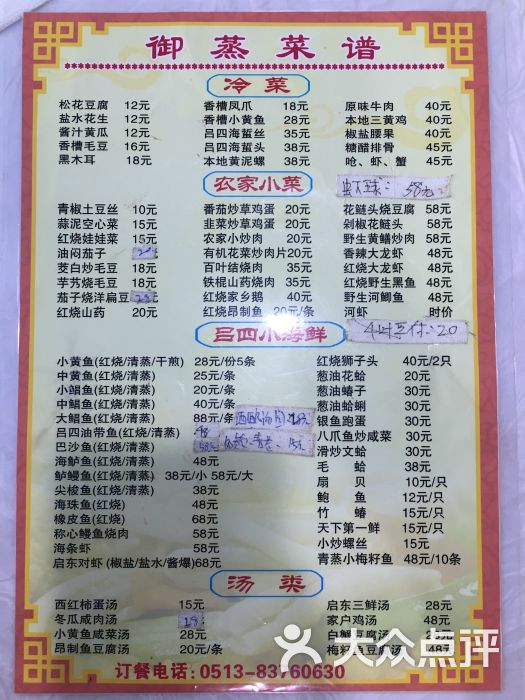 御蒸菜谱
冷菜
松花豆腐 12元
盐水花生 12元
酱汁黄瓜 12元
香糟毛豆 16元
黑木耳 18元
香糟凤爪 18元
香糟小黄鱼 28元
吕四海蜇丝 35元
吕四海蜇头 38元
本地黄泥螺 38元
原味牛肉 40元
本地三黄鸡 40元
椒盐腰果 40元
糖醋排骨 45元
呛、虾、蟹 45元
农家小菜
虾球: 58元
青椒土豆丝 10元
蒜泥空心菜 15元
红烧娃娃菜 15元
油闷茄子
茭白炒毛豆 18元
芋艿烧毛豆 18元
茄子烧洋扁豆
红烧山药 20元
番茄炒草鸡蛋 20元
韭菜炒草鸡蛋 20元
农家小炒肉 20元
有机花菜炒肉片 20元
百叶结烧肉 35元
铁棍山药烧肉 35元
红烧家乡鹅 40元
红烧昂制鱼 20元/条
花鲢头烧豆腐 58元
剁椒花鲢头 58元
野生黄鳝炒肉 58元
香辣大龙虾 58元
红烧大龙虾 48元
红烧野生黑鱼 48元
野生河鲫鱼 48元
河虾 时价
吕四小海鲜
小黄鱼(红烧/清蒸/干煎) 28元/份5条
中黄鱼(红烧/清蒸) 25元/条
小鲳鱼(红烧/清蒸) 20元/条
中鲳鱼(红烧/清蒸) 40元/条
大鲳鱼(红烧/清蒸) 88元/条
吕四油带鱼(红烧/清蒸)
巴沙鱼(红烧/清蒸) 58元
海鲈鱼(红烧/清蒸) 48元
鲈鳗鱼(红烧/清蒸) 38元/小 58元/大
尖梭鱼(红烧/清蒸) 38元
海珠鱼(红烧) 48元
橡皮鱼(红烧) 68元
称心鳗鱼烧肉 58元
海条虾 58元
启东对虾 (椒盐/盐水/酱爆)68元
红烧狮子头 40元/2只
葱油花蛤 30元
葱油蝽子 30元
葱油蛤蜊 30元
银鱼跑蛋 30元
八爪鱼炒咸菜 30元
滑炒文蛤 30元
毛蛤 38元
扇贝 10元/只
鲍鱼 12元/只
竹蝽 15元/只
天下第一鲜 15元/只
小炒螺丝 15元
青蒸小梅籽鱼 48元/10条
汤类
西红柿蛋汤 15元
冬瓜咸肉汤
小黄鱼咸菜汤 28元
昂制鱼豆腐汤 20元/条
启东三鲜汤 28元
家户鸡汤 48元
白蟹豆腐汤
梅籽鱼豆腐汤 48元
订餐电话: 0513-83760630
大众点评